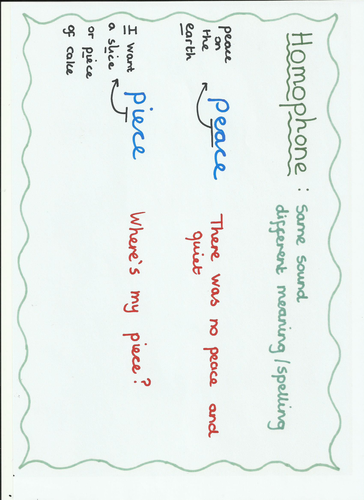 Homophone : same sound
different meaning/spelling
peace
on
the
earth
peace
There was no peace and
quiet
I want
a slice
or piece
of cake
piece
Where's my piece?